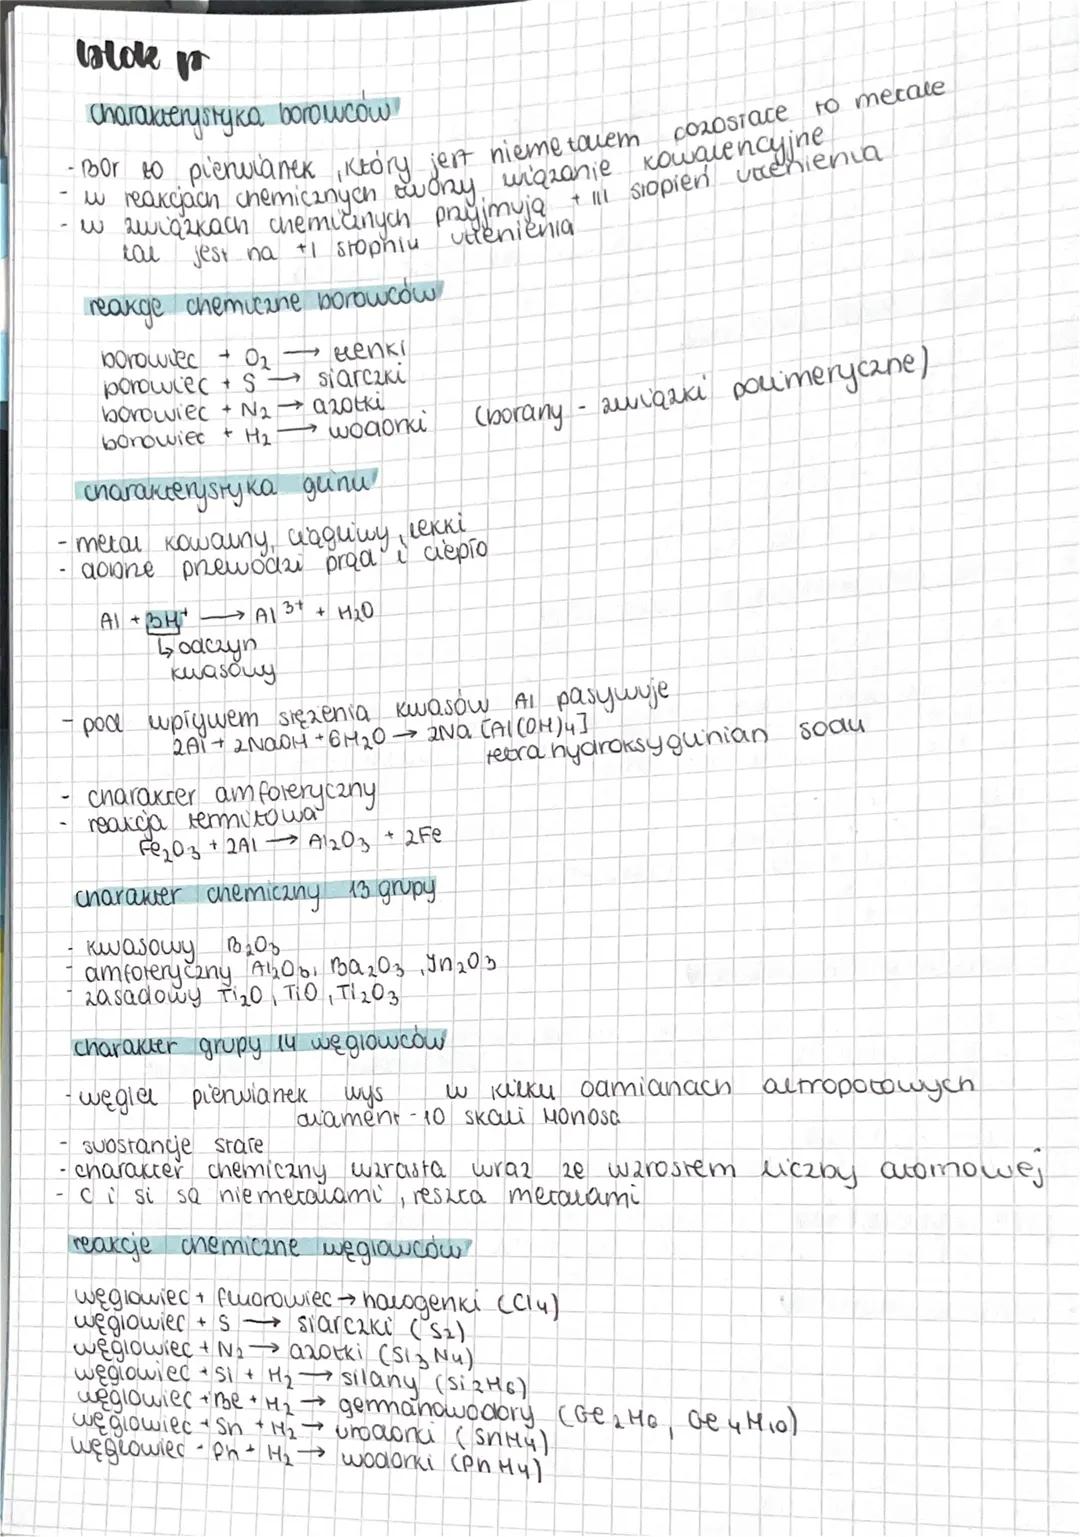 blok p
charakterystyka borowców
- Bor to pierwianek, który jest niemetalem pozostałe to metale
- w reakcjach chemicznych tworzy wiązanie kowalencyjne
- w związkach chemicznych przyjmują + III stopień utlenienia
tal jest na +I stopniu utlenienia
reakcje chemiczne borowców
borowiec + O2 → tlenki
borowiec + S → siarczki
borowiec + N2 → azotki
borowiec + H2 → wodorki (borany - związki polimeryczne)
charakterystyka glinu
- metal kowalny, ciągliwy, lekki
- dobrze przewodzi prąd i ciepło
Al + 3H+ → Al 3+ + H2O
↳ odczyn
kwasowy
- pod wpływem stężenia kwasów Al pasywuje
2Al + 2NaOH + 6H2O → 2Na [Al(OH)4]
tetrahydroksyglinian sodu
- charakter amfoteryczny
- reakcja termitowa
Fe2O3 + 2Al → Al2O3 + 2Fe
charakter chemiczny 13 grupy
- kwasowy B2O3
- amfoteryczny Al2O3, Ba2O3, In2O3
- zasadowy Tl2O, TiO, Tl2O3
charakter grupy 14 węglowców
- węgiel pierwianek wys w kilku odmianach altropotowych
diament - 10 skali Mohosa
- substancje stałe
- charakter chemiczny wzrasta wraz ze wzrostem liczby atomowej
- C i Si są niemetalami, reszta metalami
reakcje chemiczne węglowców
węglowiec + fluorowiec → halogenki (Cl4)
węglowiec + S → siarczki (S2)
węglowiec + N2 → azotki (Si3N4)
węglowiec + Si + H2 → silany (Si2H6)
węglowiec + Be + H2 → germanowodory (Ge2H6, Ge4H10)
węglowiec + Sn + H2 → wodorki (SnH4)
węglowiec - Pn + H2 → wodorki (PnH4)